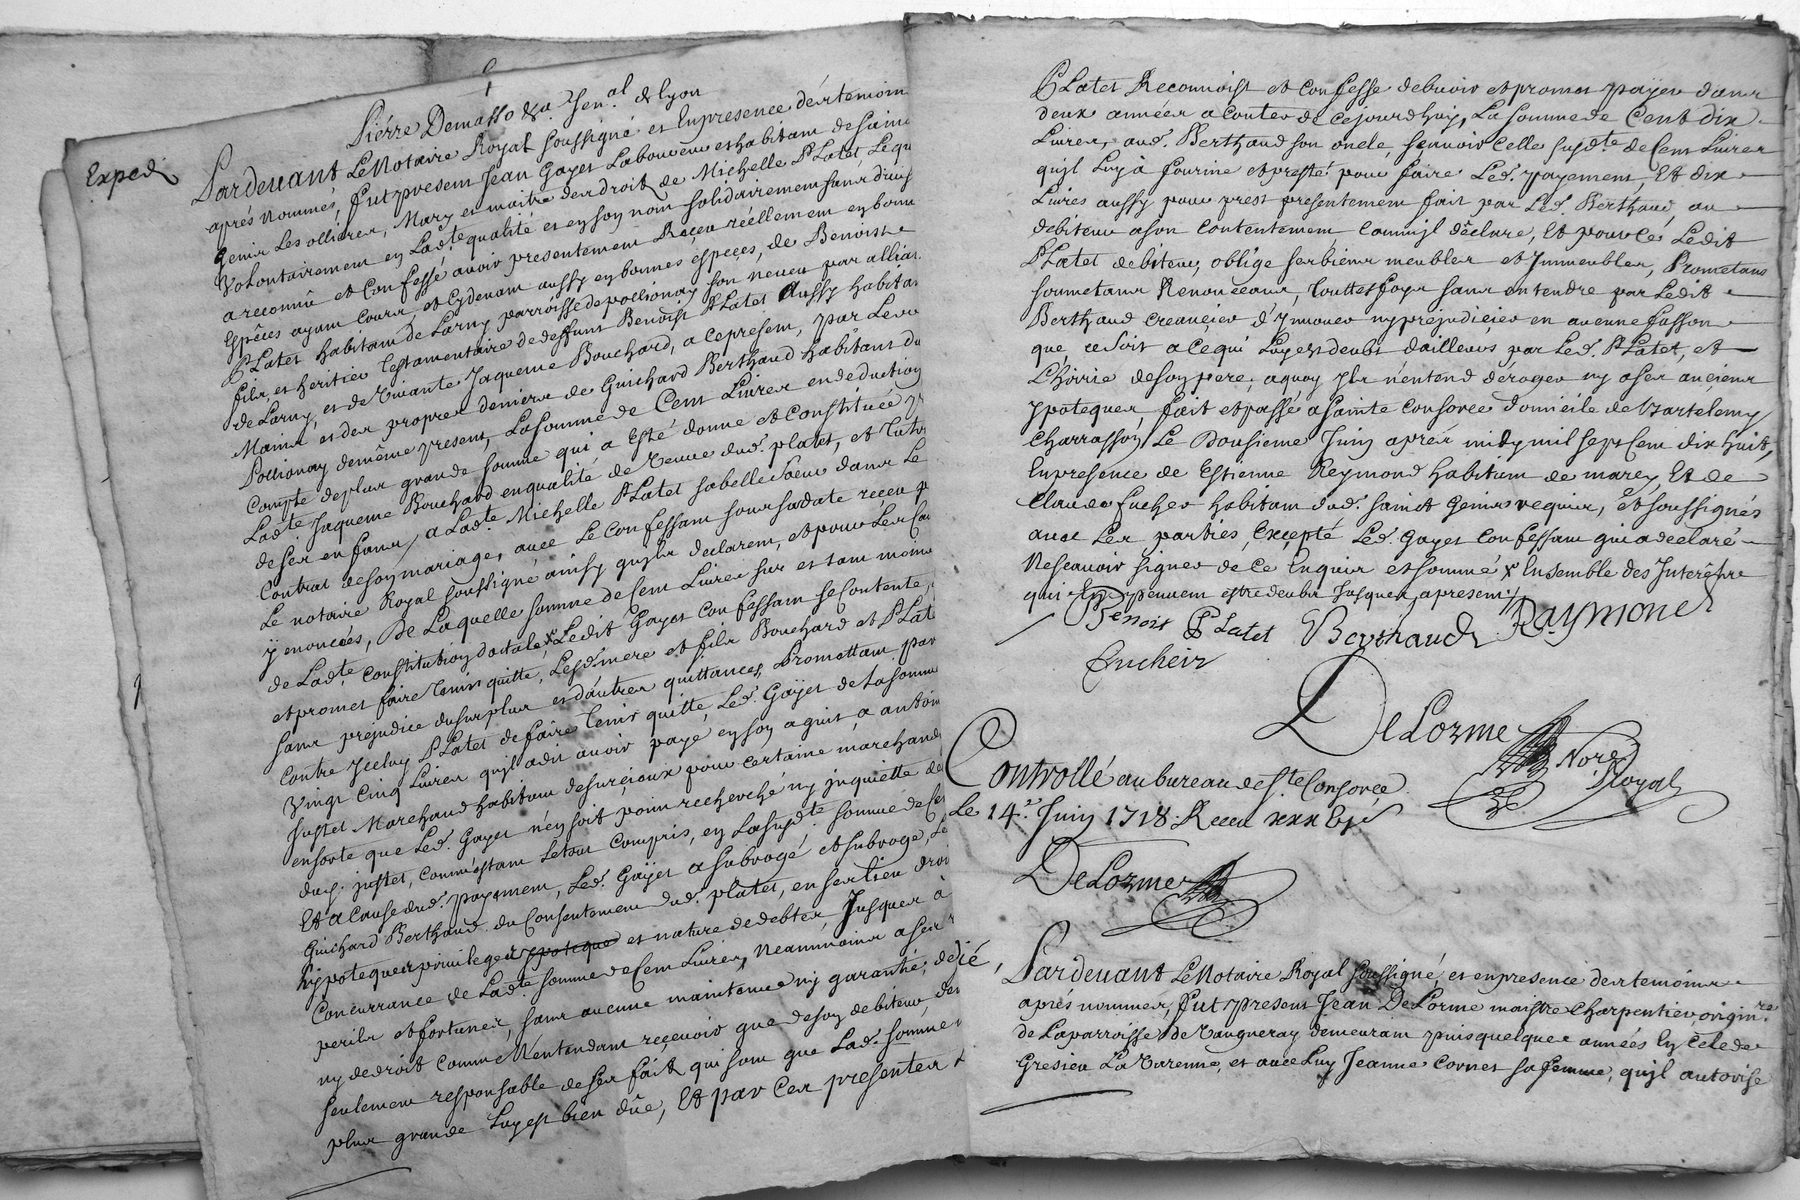 Pierre Demasso &a. Gen.al de Lyon
Exped
Pardevant Le Notaire Royal soussigné et En presence des temoin
aprés Nommés, fut present Jean Gayet Laboureur et habitant de sainct
Genis Les ollieres, Mary et maitre des droits de Michelle Platet, Lequ
Volontairement en Ladte qualité et en son nom solidairement sans divis
a reconnû et Confessé avoir presentement Receu réellement en bonne
Espêces ayant cours, et Cydevant aussy en bonnes espeçes, de Benoist
Platet habitant de Larny parroisse de pollionay son neveu par allian
fils, et heritier testamentaire de deffunt Benoist Platet Aussy habitan
de Larny, et de vivante Jaqueme Bouchard, a ce present, par Les
Mains et des propres deniers de Guichard Berthaud habitant du
Pollionay de même present, La somme de Cent Livres en deduction
Compte de plus grande somme qui a Esté donné et Constituée p
Ladte Jaqueme Bouchard en qualité de veuve dud. platet, et tutri
de ses enfans, a Ladte Michelle Platet sa belle soeur dans Le
Contrat de son mariage, avec Le Confessant sous sa date receu p
Le notaire Royal soussigné ainsy quils declarent, et pour Les Cau
y enoncées, De Laquelle somme de Cent Livres sur et tant moins
de Ladte Constitution dotale, Ledit Gayet Confessant se Contente,
et promet faire tenir quitte, Lesd. mere et fils Bouchard et Plat
sans prejudice du surplus et d'autres quittances, Promettant par
Contre Iceluy Platet de faire tenir quitte, Led. Gayet de La somme
Vingt Cinq Livres quil a dit avoir payé en son aquit a antoin
Justet Marchand habitant de surcieux pour certaine marchand
en sorte que Led. Gayet n'en soit point recherché ny inquietté de
dud. justet, comme estant Le tout Compris, en La susdte somme de Ce
Et a Cause dud. payement, Led. Gayet a subrogé et subroge, Le
Guichard Berthaud du Consentement dud. platet, en ses lieu droi
hypoteques privileges ypoteque et nature de debtes Jusques à
Concurrance de Ladte somme de Cent Livres, Neammoins a ses
perils et fortunes, sans aucune maintenue ny garantie, de jé,
ny de droit comme N'entendant reçevoir que de son debiteur, den
seulement responsable de ses faits qui sont que Lad. somme
plus grande Luy est bien dûe, Et par Ces presentes
Platet Reconnoist et Confesse debvoir et promet payer dans
deux années a conter de cejourdhuy, La somme de Cent dix
Livres, aud. Berthaud son oncle, sçavoir Celle susdte de Cent Livres
quil Luy à fournie et presté pour faire Led. payement, Et dix
Livres aussy pour prest presentement fait par Led. Berthaud, au
debiteur a son Contentement Comm'il déclare, Et pour ce Ledit
Platet debiteur, oblige ses biens meubles et Immeubles, Prometans
soumetans Renonceans, touttesfoys sans entendre par Ledit
Berthaud Creancier d'ynnover ny prejudicier en aucune fasson
que, ce soit a ce qui Luy est deubt dailleurs par Led. Platet, et
L'hoirie de son pere, a quoy Ils n'entend déroger ny a ses anciens
ypoteques, fait et passé a sainte Consorce domicile de Bartelemy
Charrasson, Le Dousieme Juin aprés midy mil sept Cent dix huit
En presence de Estienne Reymond habitant de marcy, Et de
Claude fucher habitant dud. sainct Genis requis, et soussignés
avec Les parties, Excepté Led. Gayet Confessant qui a declaré
Ne scavoir signer de ce Enquis et sommé x Ensemble des Interêsts
qui En peuvent estre deubs Jusques, apresent,
Benoit Platet Berthaud Raymond
DeLorme
Nore Royal
Controllé au bureau de Ste Consorce
Le 14e Juin 1718. Receu xxx
DeLorme
Pardevant Le Notaire Royal soussigné, et en presence des temoins
aprés nommes, fut present Jean DeLorme maistre charpentier, originre
de La parroisse de Vaugneray demeurant puis quelques années En Celle de
Gresieu La Varenne, et avec Luy Jeanne Cornet sa femme, qu'il autorise